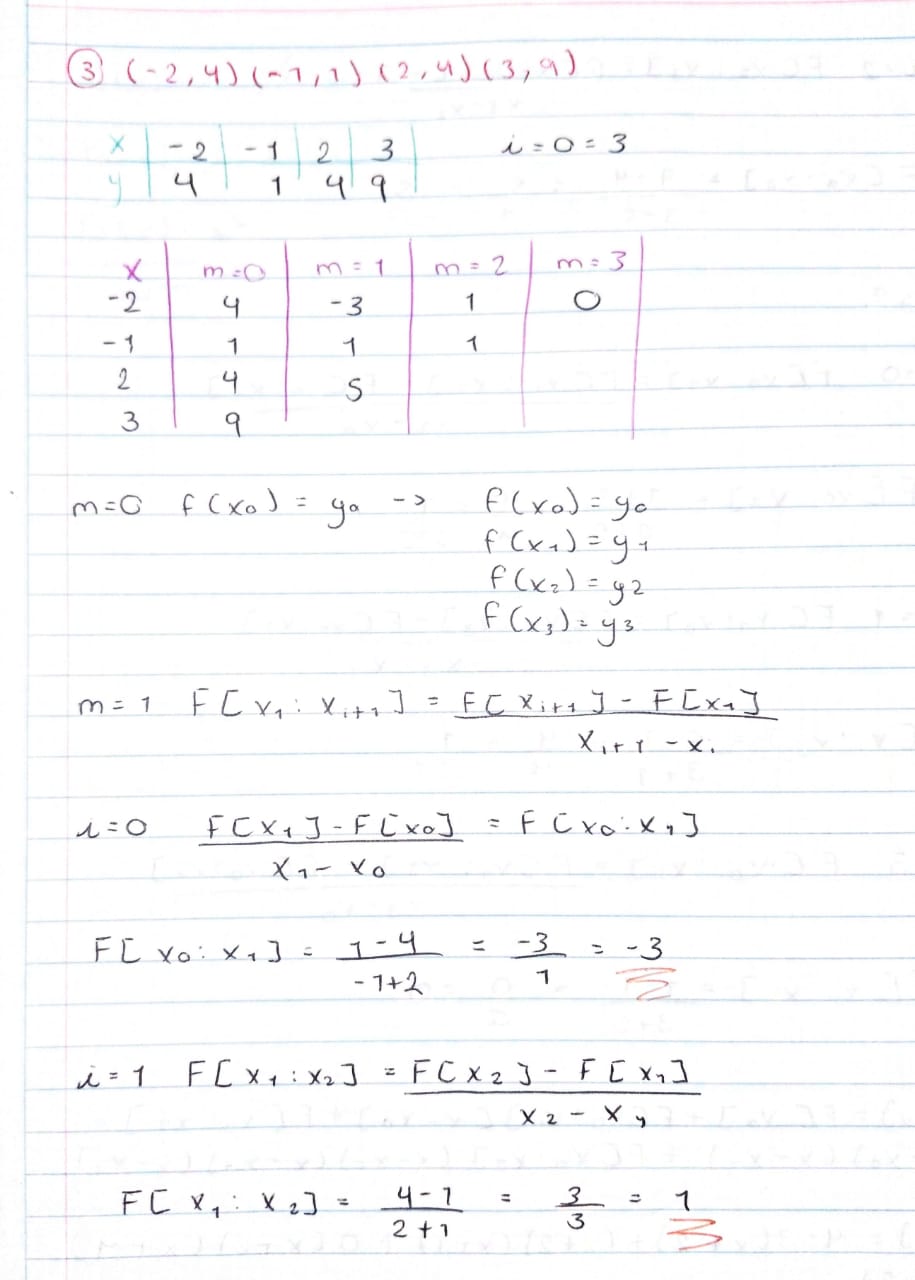 ③ (-2,4) (-1,1) (2,4) (3,9)
x | -2 | -1 | 2 | 3 | i=0=3
y | 4 | 1 | 4 | 9
x | m=0 | m=1 | m=2 | m=3
-2 | 4 | -3 | 1 | 0
-1 | 1 | 1 | 1
2 | 4 | 5
3 | 9
m=0 f(x₀) = y₀ -> f(x₀)=y₀
f(x₁)=y₁
f(x₂)=y2
f(x₃)=y₃
m=1 F[x₁: xᵢ₊₁] = F[xᵢ₊₁] - F[x₁]
xᵢ₊₁ - xᵢ
i=0 F[x₁] - F[x₀] = F[x₀:x₁]
x₁ - x₀
F[x₀: x₁] = 1-4 = -3 = -3
-1+2 1
i=1 F[x₁:x₂] = F[x₂] - F[x₁]
x₂ - x₁
F[x₁: x₂] = 4-1 = 3 = 1
2+1 3